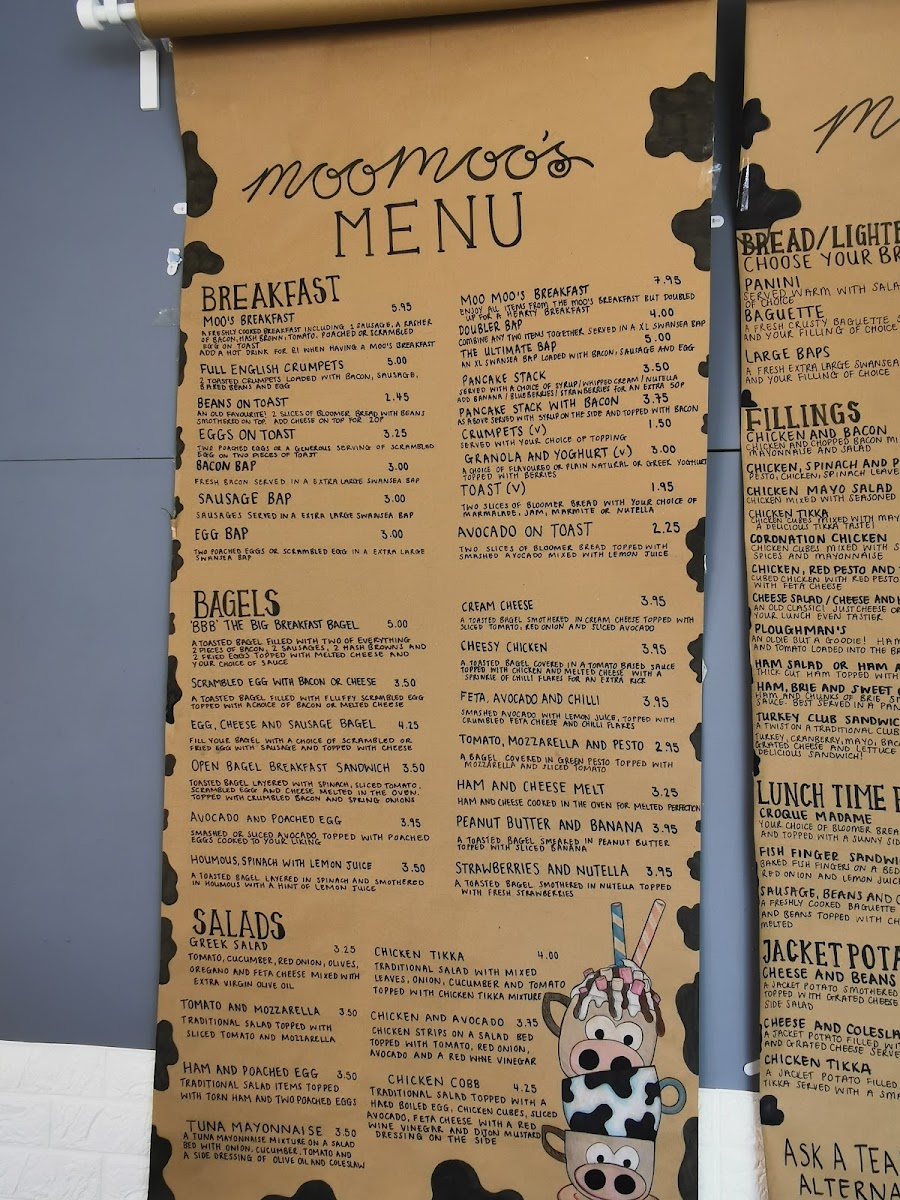 moomoo's
MENU
BREAKFAST
MOO'S BREAKFAST 5.95
A FRESHLY COOKED BREAKFAST INCLUDING 1 SAUSAGE, A RASHER
OF BACON, HASH BROWN, TOMATO, POACHED OR SCRAMBLED
EGG ON TOAST
ADD A HOT DRINK FOR £1 WHEN HAVING A MOO'S BREAKFAST
FULL ENGLISH CRUMPETS 5.00
2 TOASTED CRUMPETS LOADED WITH BACON, SAUSAGE,
BAKED BEANS AND EGG
BEANS ON TOAST 2.45
AN OLD FAVOURITE! 2 SLICES OF BLOOMER BREAD WITH BEANS
SMOTHERED ON TOP. ADD CHEESE ON TOP FOR 20P
EGGS ON TOAST 3.25
TWO POACHED EGGS OR A GENEROUS SERVING OF SCRAMBLED
EGG ON TWO PIECES OF TOAST
BACON BAP 3.00
FRESH BACON SERVED IN A EXTRA LARGE SWANSEA BAP
SAUSAGE BAP 3.00
SAUSAGES SERVED IN A EXTRA LARGE SWANSEA BAP
EGG BAP 3.00
TWO POACHED EGGS OR SCRAMBLED EGG IN A EXTRA LARGE
SWANSEA BAP
MOO MOO'S BREAKFAST 7.95
ENJOY ALL ITEMS FROM THE MOO'S BREAKFAST BUT DOUBLED
UP FOR A HEARTY BREAKFAST
DOUBLER BAP 4.00
COMBINE ANY TWO ITEMS TOGETHER SERVED IN A XL SWANSEA BAP
THE ULTIMATE BAP 5.00
AN XL SWANSEA BAP LOADED WITH BACON, SAUSAGE AND EGG
PANCAKE STACK 3.50
SERVED WITH A CHOICE OF SYRUP/WHIPPED CREAM/NUTELLA
ADD BANANA/BLUEBERRIES/STRAWBERRIES FOR AN EXTRA 50P
PANCAKE STACK WITH BACON 3.75
AS ABOVE SERVED WITH SYRUP ON THE SIDE AND TOPPED WITH BACON
CRUMPETS (V) 1.50
SERVED WITH YOUR CHOICE OF TOPPING
GRANOLA AND YOGHURT (V) 3.00
A CHOICE OF FLAVOURED OR PLAIN NATURAL OR GREEK YOGHURT
TOPPED WITH BERRIES
TOAST (V) 1.95
TWO SLICES OF BLOOMER BREAD WITH YOUR CHOICE OF
MARMALADE, JAM, MARMITE OR NUTELLA
AVOCADO ON TOAST 2.25
TWO SLICES OF BLOOMER BREAD TOPPED WITH
SMASHED AVOCADO MIXED WITH LEMON JUICE
BAGELS
'BBB' THE BIG BREAKFAST BAGEL 5.00
A TOASTED BAGEL FILLED WITH TWO OF EVERYTHING
2 PIECES OF BACON, 2 SAUSAGES, 2 HASH BROWNS AND
2 FRIED EGGS TOPPED WITH MELTED CHEESE AND
YOUR CHOICE OF SAUCE
SCRAMBLED EGG WITH BACON OR CHEESE 3.50
A TOASTED BAGEL FILLED WITH FLUFFY SCRAMBLED EGG
TOPPED WITH A CHOICE OF BACON OR MELTED CHEESE
EGG, CHEESE AND SAUSAGE BAGEL 4.25
FILL YOUR BAGEL WITH A CHOICE OF SCRAMBLED OR
FRIED EGG WITH SAUSAGE AND TOPPED WITH CHEESE
OPEN BAGEL BREAKFAST SANDWICH 3.50
TOASTED BAGEL LAYERED WITH SPINACH, SLICED TOMATO,
SCRAMBLED EGG AND CHEESE MELTED IN THE OVEN.
TOPPED WITH CRUMBLED BACON AND SPRING ONIONS
AVOCADO AND POACHED EGG 3.95
SMASHED OR SLICED AVOCADO, TOPPED WITH POACHED
EGGS COOKED TO YOUR LIKING
HOUMOUS, SPINACH WITH LEMON JUICE 3.50
A TOASTED BAGEL LAYERED IN SPINACH AND SMOTHERED
IN HOUMOUS WITH A HINT OF LEMON JUICE
CREAM CHEESE 3.95
A TOASTED BAGEL SMOTHERED IN CREAM CHEESE TOPPED WITH
SLICED TOMATO, RED ONION AND SLICED AVOCADO
CHEESY CHICKEN 3.95
A TOASTED BAGEL COVERED IN A TOMATO BASED SAUCE
TOPPED WITH CHICKEN AND MELTED CHEESE WITH A
SPRINKLE OF CHILLI FLAKES FOR AN EXTRA KICK
FETA, AVOCADO AND CHILLI 3.95
SMASHED AVOCADO WITH LEMON JUICE, TOPPED WITH
CRUMBLED FETA CHEESE AND CHILLI FLAKES
TOMATO, MOZZARELLA AND PESTO 2.95
A BAGEL COVERED IN GREEN PESTO TOPPED WITH
MOZZARELLA AND SLICED TOMATO
HAM AND CHEESE MELT 3.25
HAM AND CHEESE COOKED IN THE OVEN FOR MELTED PERFECTION
PEANUT BUTTER AND BANANA 3.95
A TOASTED BAGEL SMEARED IN PEANUT BUTTER
TOPPED WITH SLICED BANANA
STRAWBERRIES AND NUTELLA 3.95
A TOASTED BAGEL SMOTHERED IN NUTELLA TOPPED
WITH FRESH STRAWBERRIES
SALADS
GREEK SALAD 3.25
TOMATO, CUCUMBER, RED ONION, OLIVES,
OREGANO AND FETA CHEESE MIXED WITH
EXTRA VIRGIN OLIVE OIL
TOMATO AND MOZZARELLA 3.50
TRADITIONAL SALAD TOPPED WITH
SLICED TOMATO AND MOZZARELLA
HAM AND POACHED EGG 3.50
TRADITIONAL SALAD ITEMS TOPPED
WITH TORN HAM AND TWO POACHED EGGS
TUNA MAYONNAISE 3.50
A TUNA MAYONNAISE MIXTURE ON A SALAD
BED WITH ONION, CUCUMBER, TOMATO AND
A SIDE DRESSING OF OLIVE OIL AND COLESLAW
CHICKEN TIKKA 4.00
TRADITIONAL SALAD WITH MIXED
LEAVES, ONION, CUCUMBER AND TOMATO
TOPPED WITH CHICKEN TIKKA MIXTURE
CHICKEN AND AVOCADO 3.75
CHICKEN STRIPS ON A SALAD BED
TOPPED WITH TOMATO, RED ONION,
AVOCADO AND A RED WINE VINEGAR
CHICKEN COBB 4.25
TRADITIONAL SALAD TOPPED WITH A
HARD BOILED EGG, CHICKEN CUBES, SLICED
AVOCADO, FETA CHEESE WITH A RED
WINE VINEGAR AND DIJON MUSTARD
DRESSING ON THE SIDE
BREAD/LIGHTE
CHOOSE YOUR BR
PANINI
SERVED WARM WITH SALA
OF CHOICE
BAGUETTE
A FRESH CRUSTY BAGUETTE S
AND YOUR FILLING OF CHOICE
LARGE BAPS
A FRESH EXTRA LARGE SWANSEA
AND YOUR FILLING OF CHOICE
FILLINGS
CHICKEN AND BACON
CHICKEN AND CHOPPED BACON MI
MAYONNAISE AND SALAD
CHICKEN, SPINACH AND P
PESTO, CHICKEN, SPINACH LEAVE
CHICKEN MAYO SALAD
CHICKEN MIXED WITH SEASONED
CHICKEN TIKKA
CHICKEN CUBES MIXED WITH MAY
A DELICIOUS TIKKA TASTE!
CORONATION CHICKEN
CHICKEN CUBES MIXED WITH S
SPICES AND MAYONNAISE
CHICKEN, RED PESTO AND
CUBED CHICKEN WITH RED PESTO
WITH FETA CHEESE
CHEESE SALAD/CHEESE AND H
AN OLD CLASSIC! JUST CHEESE OR
YOUR LUNCH EVEN TASTIER
PLOUGHMAN'S
AN OLDIE BUT A GOODIE! HAM
AND TOMATO LOADED INTO THE BR
HAM SALAD OR HAM A
THICK CUT HAM TOPPED WITH
HAM, BRIE AND SWEET C
HAM AND CHUNKS OF BRIE SP
SAUCE. BEST SERVED IN A PAN
TURKEY CLUB SANDWIC
A TWIST ON A TRADITIONAL CLUB
TURKEY, CRANBERRY, MAYO, BAC
GRATED CHEESE AND LETTUCE
DELICIOUS SANDWICH!
LUNCH TIME F
CROQUE MADAME
YOUR CHOICE OF BLOOMER BREA
AND TOPPED WITH A SUNNY SID
FISH FINGER SANDWI
BAKED FISH FINGERS ON A BED
RED ONION AND LEMON JUIC
SAUSAGE, BEANS AND C
A FRESHLY COOKED BAGUETTE
AND BEANS TOPPED WITH CH
MELTED
JACKET POTA
CHEESE AND BEANS
A JACKET POTATO SMOTHERED
TOPPED WITH GRATED CHEESE
SIDE SALAD
CHEESE AND COLESLA
A JACKET POTATO FILLED WIT
AND GRATED CHEESE SERVE
CHICKEN TIKKA
A JACKET POTATO FILLED
TIKKA SERVED WITH A SMA
ASK A TEA
ALTERNA